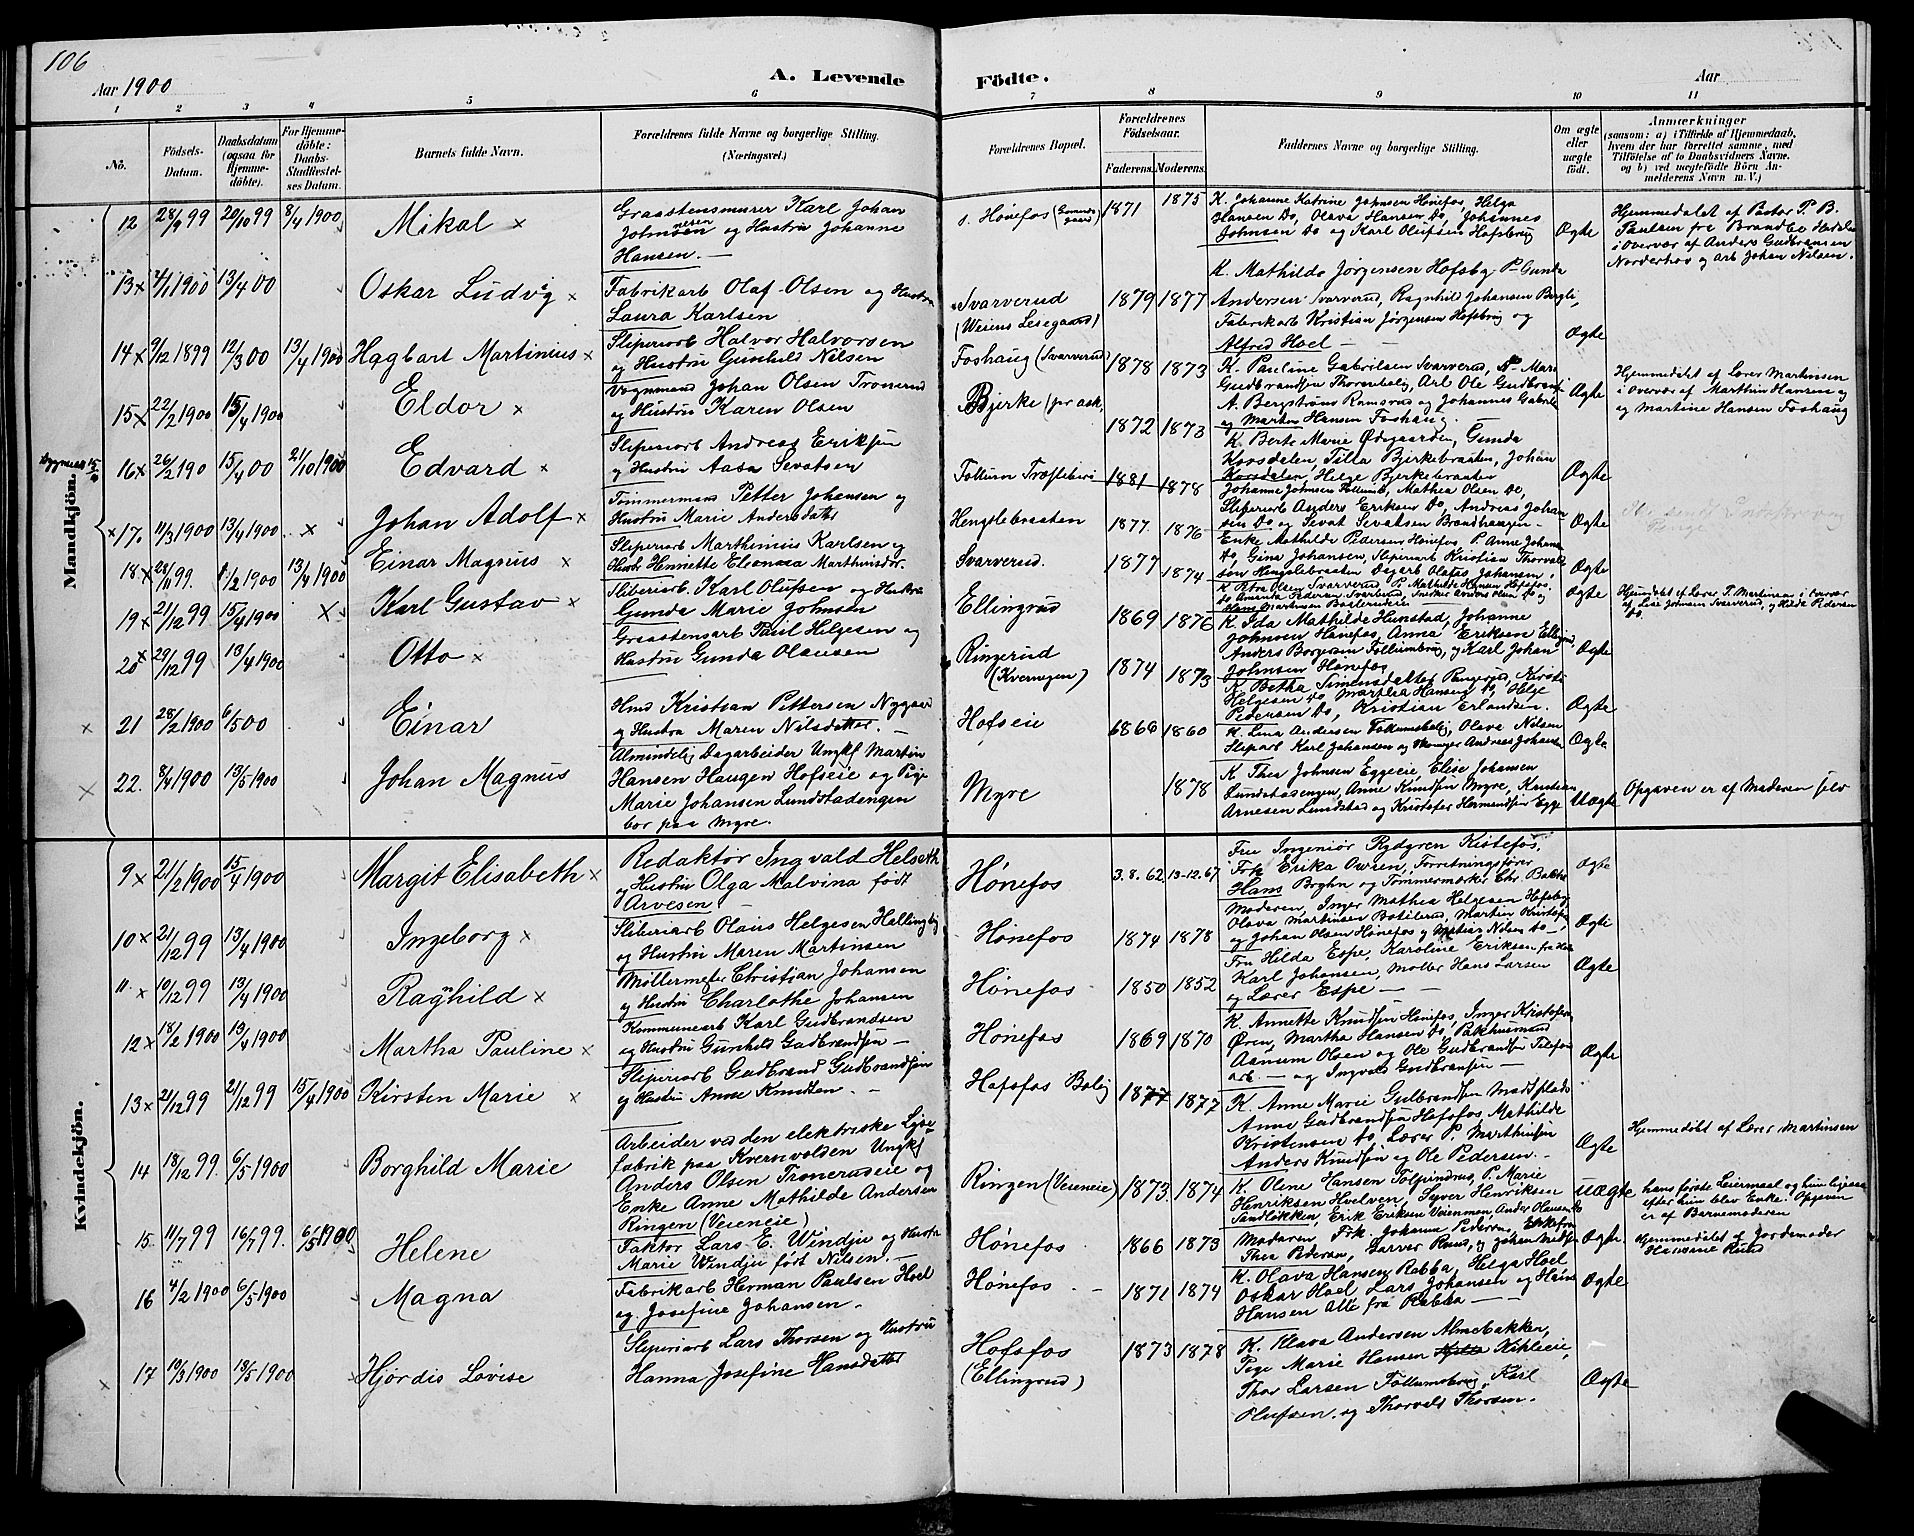 106
Aar 1900
A. Levende
Födte.
Aar
1 2 3 4 5 6 7 8 9 10 11
No.
Födsels-
Datum.
Daabsdatum
(ogsaa for
Hjemme-
döbte).
For Hjemme-
döbte:
Daabs-
Stadfestel-
ses Datum.
Barnets fulde Navn.
Forældrenes fulde Navne og borgerlige Stilling.
(Næringsvei.)
Forældrenes Bopæl.
Forældrenes
Födselsaar.
Faderens. Moderens.
Faddernes Navne og borgerlige Stilling.
Om ægte
eller
uægte
födt.
Anmærkninger
(saasom: a) i Tilfælde af Hjemmedaab,
hvem der har forrettet samme, med
Tilföielse af to Daabsvidners Navne,
og b) ved uægtefödte Börn An-
melderens Navn m. V.)
Mandkjön.
12 28/9 99 20/10 99 8/4 1900 Mikal x
Graastensmurer Karl Johan
Johnsen og Hustru Johanne
Hansen. —
s. Hönefos 1871 1875
K. Johanne Katrine Johnsen Hönefos, Helga
Hansen Do, Olava Hansen Do, Johannes
Johnsen Do og Karl Olufsen Hofsbrug
Ægte
Hjemmedøbt af Pastor P. B.
Paulsen fra Brandbo Hedalen
i Overvær af Anders Gudbransen
Norderhov og Arb Johan Nilsen.
13 x 4/1 1900 13/4 00 Oskar Ludvig x
Fabrikarb Olaf Olsen og Hustru
Laura Karlsen
Svarverud
(Weiens Løsegaard)
1879 1877
K. Mathilde Jørgensen Hofsby P. Gunda
Andersen Svarverud, Ragnhild Johansen Bergli,
Fabrikarb Kristian Jørgensen Hofsbrug og
Alfred Hoel —
Ægte
14 x 9/12 1899 12/3 00 13/4 1900 Hagbart Martinius x
Sliperiarb Halvor Halvorsen
og Hustru Gunhild Nilsen
Foshaug (Svarverud) 1878 1873
K. Pauline Gabrielsen Svarverud, P. Mari
Gudbrandsen Thorenbolig, Arb Ole Gudbrands
Ægte
Hjemmedøbt af Lærer Martinsen
i Overvær af Marthin Hansen og
og Martine Hansen Foshaug
15 x 22/2 1900 15/4 1900 Eldor x
Vognmand Johan Olsen Tronerud
og Hustru Karen Olsen
Bjerke (pr ask.
1872 1873
A. Bergstrøm Ramsrud og Johannes Gabriels
og Marten Hansen Foshaug.
16 x 26/2 190 15/4 00 21/10 1900 Edvard x
Sliperiarb Andreas Eriksen
og Hustru Aasa Sevatsen
Follum Træsliberi 1881 1878
K. Berte Marie Ødegaarden, Gunda
Korsdalen, Tilla Bjerkebraaten, Johan
Korsdalen, Helge Bjerkebraaten
Ægte
x 17. 11/3 1900 13/4 1900 x Johan Adolf x
Tømmermand Petter Johansen og
Hustru Marie Andersdatter
Hengslebraaten 1877 1876
Johanne Johnsen Follumb, Mathea Olsen Do,
Sliperiarb Anders Eriksen Do, Andreas Johan
sen Do og Sevat Sevatsen Brandhaugen —
Ægte
18 x 28/11 99 1/2 1900 13/4 1900 Einar Magnus x
Sliperiarb Marthinius Karlsen og
Hustr Henriette Eleonora Marthinsdtr.
Svarverud. 1877 1874
Enke Mathilde Pedersen Hönefos, P. Anne Johans
Do, Gina Johansen, Sliperiarb Kristian Thorvald
sen Hengslebraaten Dagarb Olstad Johansen.
Ægte
19 x 21/12 99 15/4 1900 x Karl Gustav x
Sliberiarb Karl Olufsen og Hustru
Gunda Marie Johnsen
Ellingrud 1869 1876
K. Petra Olsen Svarverud, P. Mathilde Hansen Hofsfos,
Ægte
Hjemdøbt af Lærer T. Martinsen i Overvær
af Lise Johnsen Svarverud, og Hilda Pedersen
Do.
20 x 29/12 99 13/4 1900 Otto x
Graastensarb Paul Helgesen og
Hustru Gunda Olausen
Ringerud
(Kvernegen)
1874 1873
K. Ida Mathilde Hunstad, Johanne
Johnsen Hönefos, Anna Eriksen Ellingrud,
Anders Borgersen Follumbrug, og Karl Johan
Johnsen Hönefos
Ægte
x 21 28/2 1900 6/5 00 Einar
Hmd Kristian Pettersen Nygaard
og Hustru Maren Nilsdatter. —
Hofseie 1866 1860
K. Betha Simensdatter Pungerud, Kirsti
Helgesen Do, Marthea Hansen Do, Helge
Pedersen Do, Kristian Erlandsen.
Ægte
x 22. 8/4 1900 13/5 1900 Johan Magnus
Almindelig Dagarbeider Ungkf Martin
Hansen Haugen Hofseie og Pige
Marie Johansen Lundstadengen
bor paa Myre.
Myre 1878
K. Lina Andersen Follumbolig, Olava Nilsen
Sliperarb Karl Johansen og Andreas Johansen
Ægte
K. Thea Johnsen Eggeeie, Elise Johansen
Lundstadengen, Anne Knudsen Myre, Kristian
Arnesen Lundstad og Kristofer Hermundsen Egge
Uægte
Opgaven er af Moderen selv
Kvindekjön.
9 x 21/2 1900 15/4 1900 Margit Elisabeth x
Redaktör Ingvald Helseth
og Hustru Olga Malvina født
Arvesen. —
Hönefos 3.8.62 13-12.67
Fru Ingeniör Rydgren Kistefos,
Frk Erika Owren, Forretningsfører
Hans Brghn og Tömmermerker Chr. Bakke
Ægte
10 x 21/12 99 13/4 1900 Ingeborg x
Sliberiarb Olaus Helgesen Hallingby
og Hustru Maren Martinsen
Hönefos 1874 1878
Moderen, Inger Mathea Helgesen Hofsbrug
Olava Martinsen Batilrud, Martin Kristofer
og Johan Olsen Hönefos og Matias Nilsen Do —
Ægte
11 x 10/12 99 13/4 1900 Ragnhild x
Møllermester Christian Johansen
og Hustru Charlothe Johansen
Hönefos 1850 1852
Fru Hilda Espe, Karoline Eriksen
Karl Johansen, Møller Hans Larsen
og Lærer Espe — —
Ægte
12 x 18/2 1900 13/4 1900 Martha Pauline x
Kommunearb Karl Gudbrandsen
og Hustru Gunhild Gudbrandsen —
Hönefos 1869 1870
K. Annette Knudsen Hönefos, Inger Kristofers
Øren, Martha Hansen Do, Pakhusmand
Aanum Olsen og Ole Gudbrandsen Telefon
arb. — og Ingvald Gudbransen —
Ægte
13 x 21/12 99 21/12 99 15/4 1900 Kirsten Marie x
Sliperiarb Gudbrand Gudbrandsen
og Hustru Anne Knudsen. —
Hofsfos Bolig 1877 1877
K. Anne Marie Gulbrandsen Madsplads
Anne Gudbrandsen Hofsfos, Mathilde
Kristensen Do, Lærer P. Marthinsen
Anders Knudsen og Ole Pedersen.
Ægte
Hjemmedøbt af Lærer Martinsen
14 18/12 99. 6/5 1900 Borghild Marie
Arbeider ved den elektriske Lys-
fabrik paa Kvernvolden Ungkf
Anders Olsen Troneruseie og
Enke Anne Mathilde Andersen
Ringen (Veieneie)
Ringen (Veieneie) 1873 1874
K. Oline Hansen Tolpinrud, P. Marie
Henriksen Hvelven, Syver Henriksen
Sandløkken, Erik Eriksen Veienmoen Ander Olausen Do
Uægte
hans første Leiermaal og hun ligesaa
efter hun blev Enke. Opgaven
er af Barnemoderen
15 11/7 99 16/7 99. 6/5 1900 Helene
Faktor Lars E. Windju og Hustru
Marie Windju født Nilsen. —
Hönefos 1866 1873
Moderen, Frk. Johanne Pedersen,
Thea Pedersen, Garver Ruud, og
Ægte
Hjemmedøbt af Jordemoder
Hansine Ruud
16 4/2 1900 6/5 1900 Magna
Fabrikarb Herman Paulsen Hoel
og Josefine Johansen.
Hönefos. — 1871 1874
K. Olava Hansen Rabba, Helga Hoel
Oskar Hoel Lars Johansen og Hans
Hansen alle fra Rabba — —
Ægte
x 17 10/3 1900 13/5 1900 Hjørdis Lovise
Sliperiarb Lars Thorsen og Hustru
Hanna Josefine Hansdatter
Hofsfos
(Ellingrud)
1873 1878
K. Klava Andersen Almebakken,
Pige Marie Hansen Kihleeie,
Thor Larsen Follumsbrug, Karl
Olufsen. og Thorvald Thorsen.
Ægte